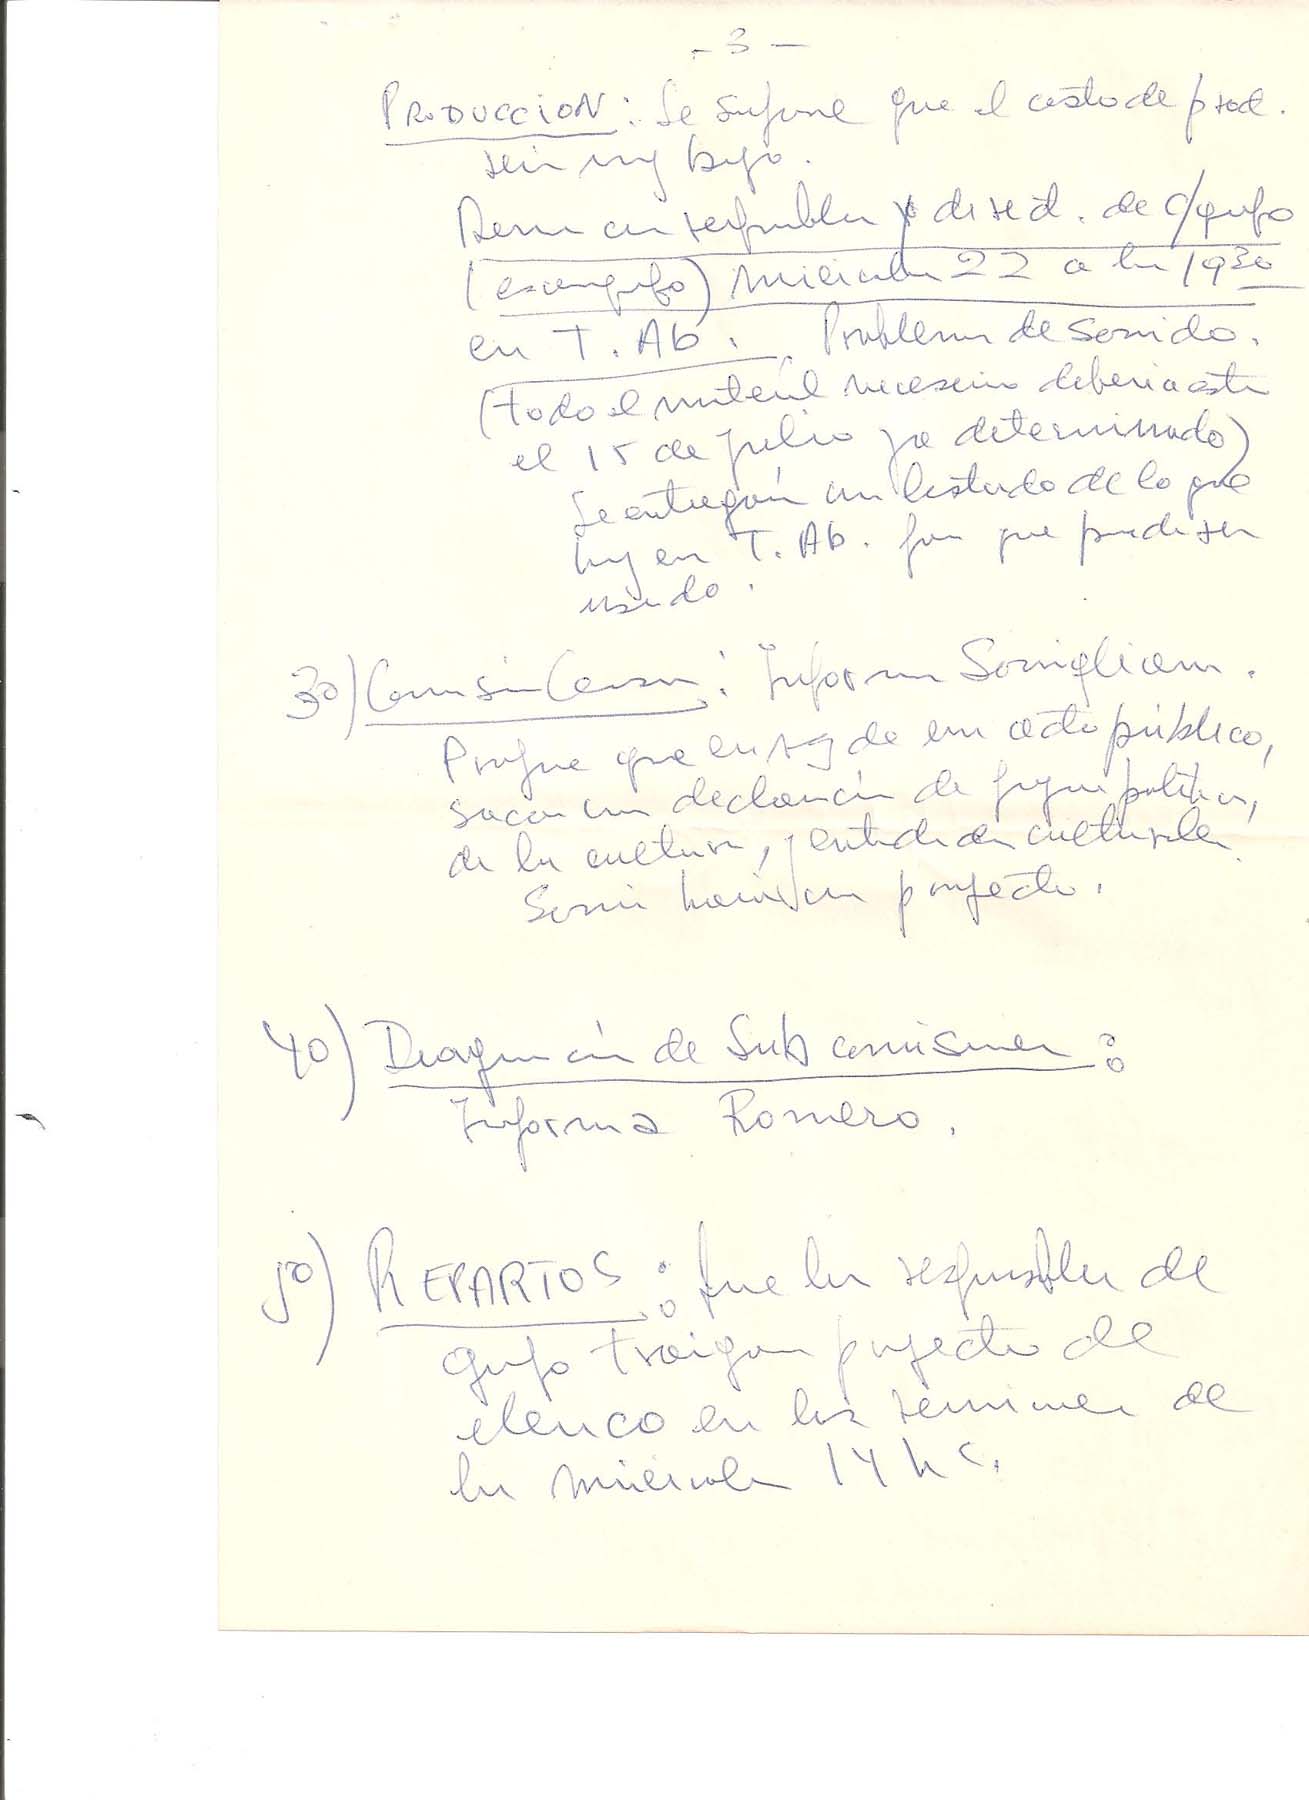 - 3 -
PRODUCCION: Se supone que el costo de prod.
será muy bajo.
Reunión responsables y dir. de c/grupo
(escenógrafo) miércoles 22 a las 19 30
en T. Ab. Problema de sonido.
(todo el material necesario debería estar
el 15 de julio ya determinado)
Se entregará un listado de lo que
hay en T. Ab. para que pueda ser
usado.
3o) Comisión Censura: Informa Somigliana.
Propone que en vez de un acto público,
sacar una declaración de figuras políticas,
de la cultura, y entidades culturales.
Somi hará un proyecto.
4o) Diagramación de Subcomisiones:
Informa Romero.
5o) REPARTOS: Que los responsables de
grupo traigan proyecto de
elenco en las reuniones de
los miércoles 14 hs.